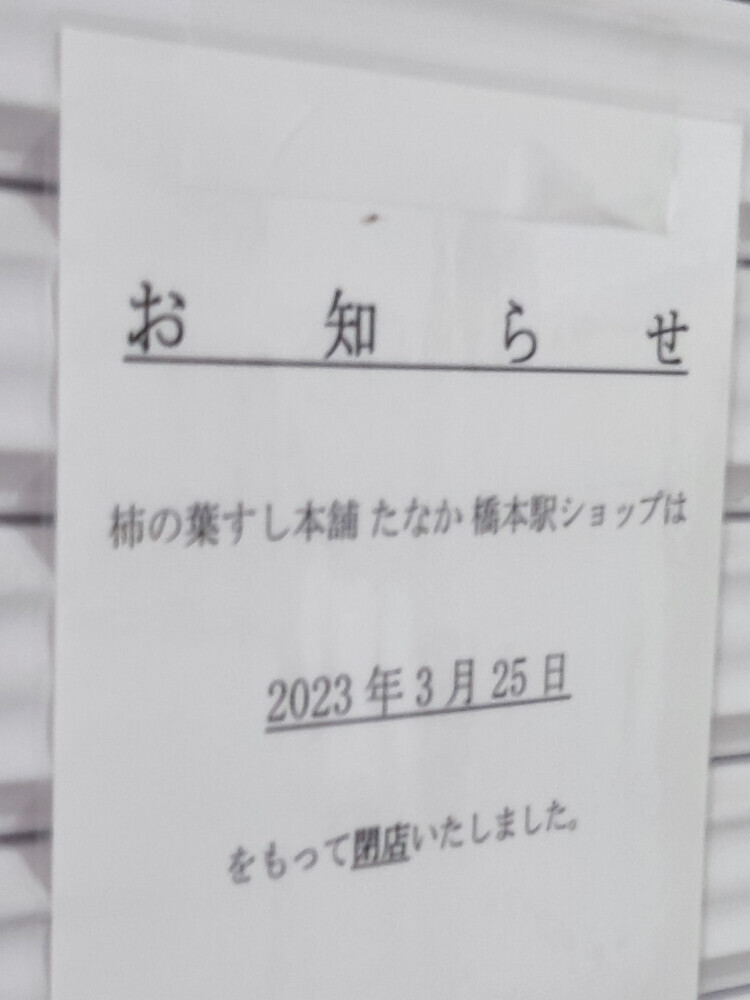 お知らせ
柿の葉すし本舗 たなか 橋本駅ショップは
2023年3月25日
をもって閉店いたしました。